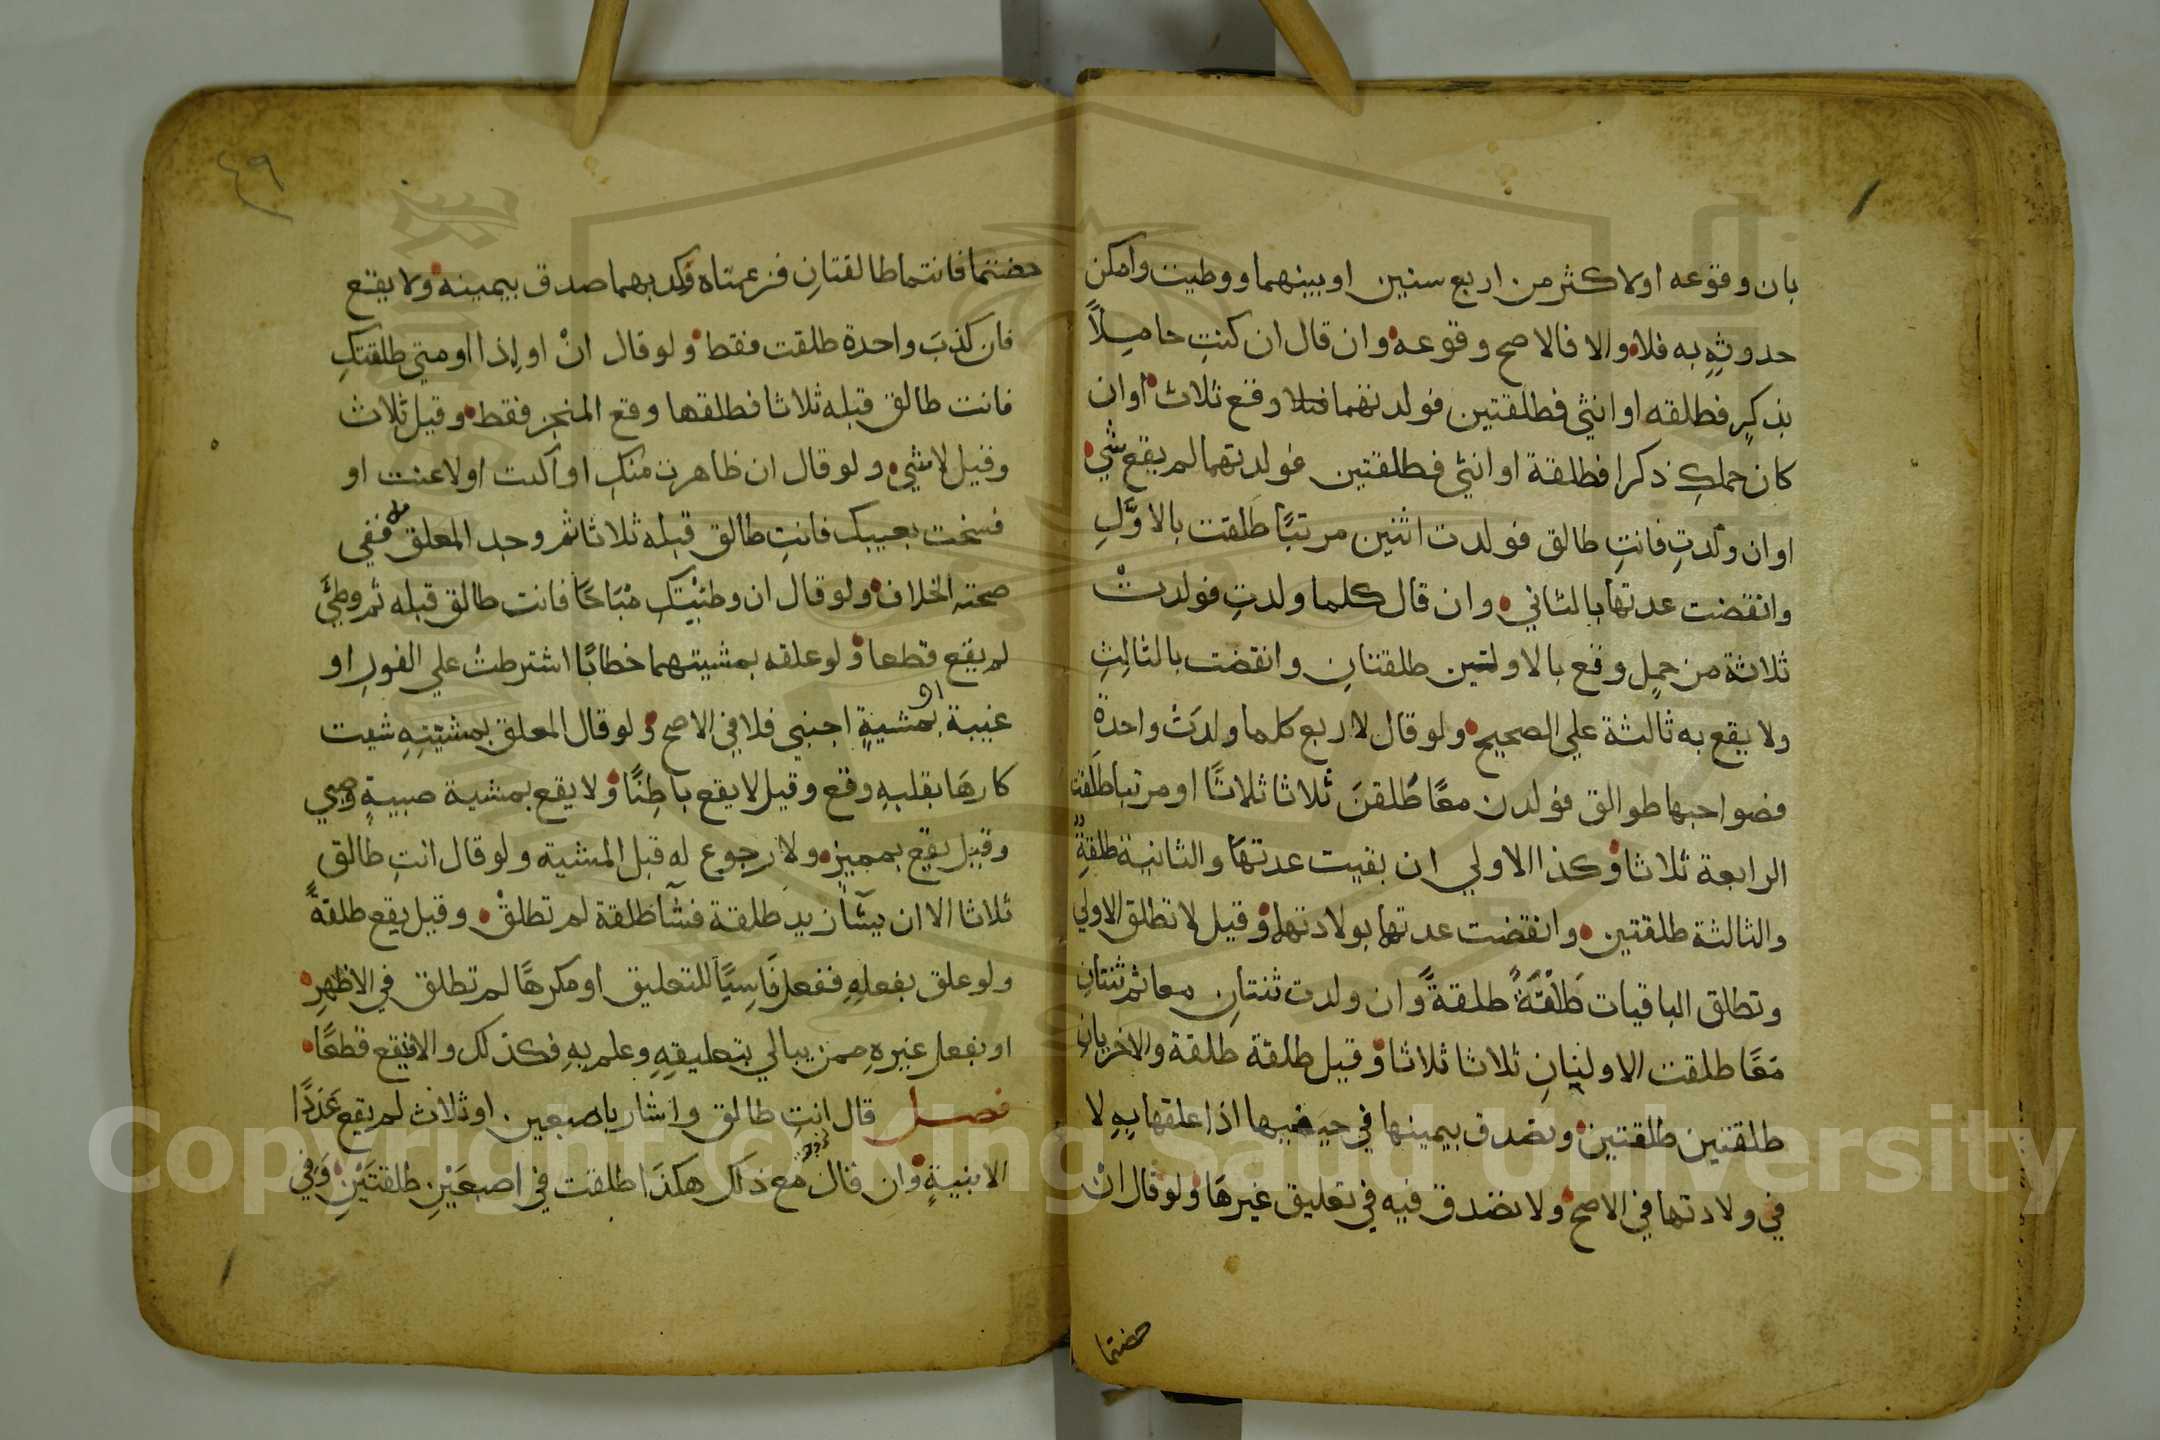 بان وقوعه او لاكثر من اربع سنين او بينهما ووطيت وامكن
حدوثِهِ به فلا والا فالاصح وقوعه وان قال ان كنتِ حاميلاً
بذكرٍ فطلقه او انثي فطلقتين فولدتهما وقع ثلاث او ان
كان حملكِ ذكرا فطلقة او انثي فطلقتين فولدتهما لم يقع شي
او ان ولدتِ فانتِ طالق فولدت اثنين مرتبًا طَلقت بالاوَّلِ
وانقضت عدتها بالثاني وان قال كلما ولدتِ فولدتْ
ثلاثة من حملٍ وقع بالاولتين طلقتانِ وانقضت بالثالِثِ
ولا يقع به ثالثة علي الصحيح ولو قال لاربع كلما ولدَتْ واحدة
فصواحبها طوالق فولدن معًا طُلقنَ ثلاثا ثلاثًا او مرتبا طَلَقت
الرابعة ثلاثا وكذا الاولي ان بقيت عدتها والثانية طلقةٍ
والثالثة طلقتين وانقضت عدتها بولادتها وقيل لا تطلق الاولي
وتطلق الباقيات طَلْقَةً طلقةً وان ولدت ثنتانِ معا ثم ثنتانِ
مَعًا طلقت الاوليانِ ثلاثا ثلاثا وقيل طلقة طلقة والاخريانِ
طلقتين طلقتين وتصدق بيمينها في حيضها اذا علقها بِهِ لا
في ولادتها في الاصح ولا تصدق فيه في تعليق غيرهَا ولو قال انْ
حضتما
٤٩
حضتما فانتما طالقتانِ فزعمتاه وكذبهما صدق بيمينه ولا يقع
فان كذبَ واحدة طلقت فقط ولو قال انْ او اِذا او متي طلقتكِ
فانت طالق قبله ثلاثا فطلقها وقع المنجز فقط وقيل ثلاث
وقيل لا شي ولو قال ان ظاهرت منكِ او آليت او لاعنت او
فسخت بعيبك فانتِ طالق قبله ثلاثا ثم وجد المعلق ففي
صحته الخلاف ولو قال ان وطئيتكِ مُبَاحًا فانت طالق قبله ثم وطيَّ
لم يقع قطعا ولو علقه بمشيتهما خطابًا اشترطتْ علي الفورِ او
غيبة او بمشيةٍ اجنبي فلا في الاصح ولو قال المعلق بمشيّتِهِ شيت
كارهَا بقلبهِ وقع وقيل لا يقع باطِنًا ولا يقع بمشية صبيةٍ وصبي
وقيل يقع بمميزٍ ولا رجوع له قبل المشية ولو قال انتِ طالق
ثلاثا الا ان يشآ زيد طلقة فشآ طلقة لم تطلقْ وقيل يقع طلقةً
ولو علق بفعلِهِ ففعل نَاسِيًا للتعليق او مكرهًا لم تطلق في الاظهرِ
او بفعل غيرهِ ممن يبالي بتعليقِهِ وعلم بِهِ فكذلك والا فيقع قطعًا
فصل قال انتِ طالق واشار باصبعين او ثلاث لم يقع عَدَدًا
الا بنيةٍ وان قال مع ذلك هكذَا طلقت في اصبعَيْنِ طلقتَيْنِ وَفِي
Copyright © King Saud University